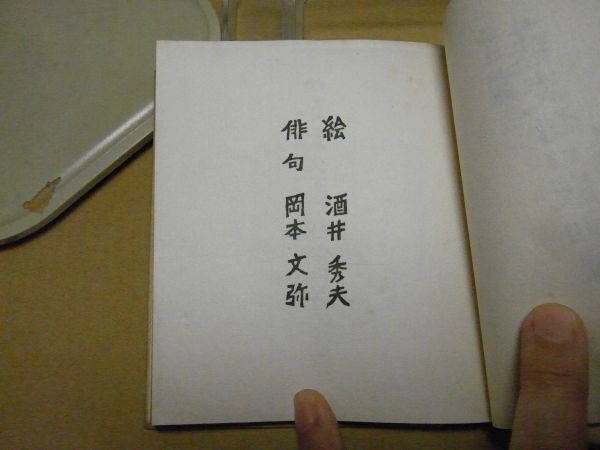 絵 酒井秀夫
俳句 岡本文弥